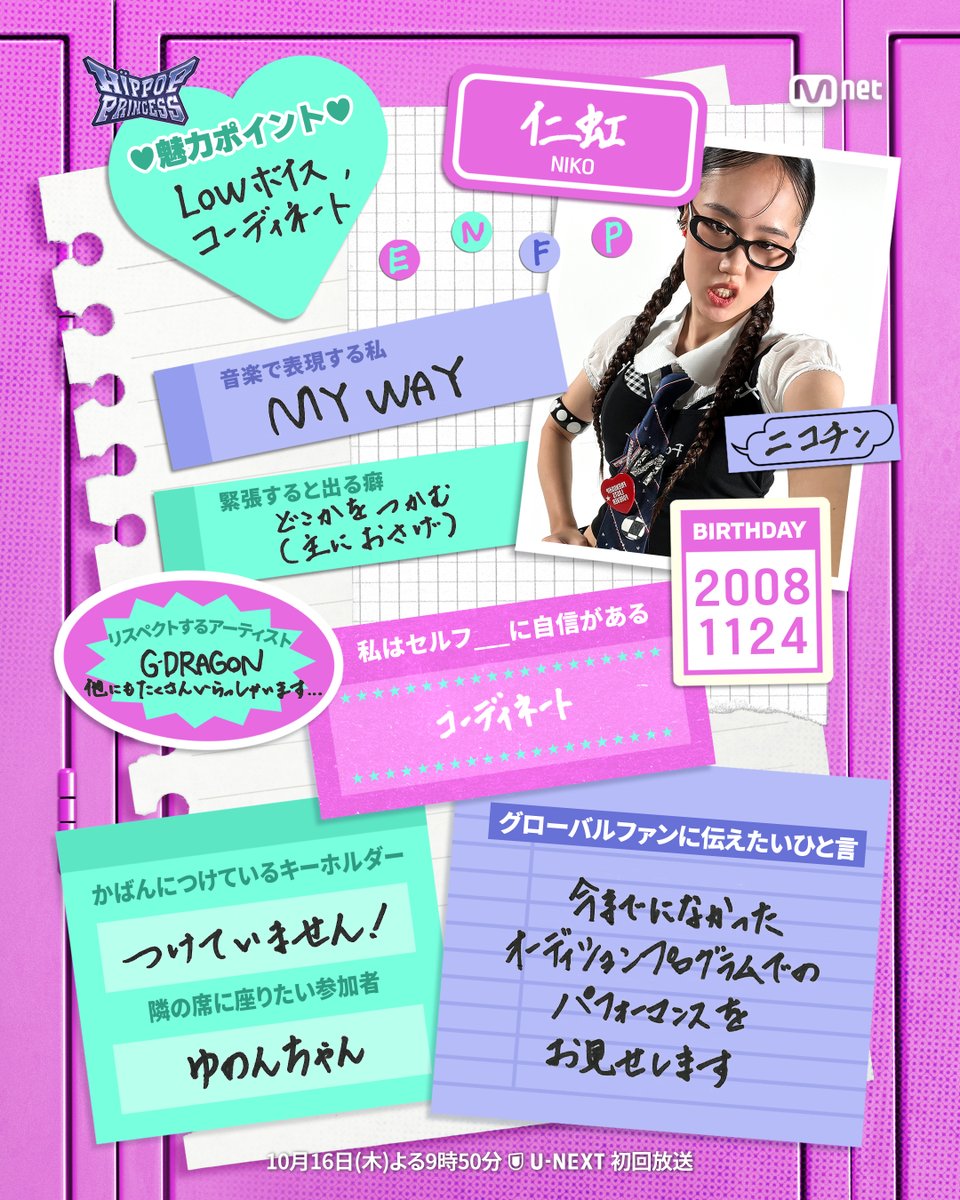 HIPPOP
PRINCESS
Mnet
♥魅力ポイント♥
Lowボイス、
コーディネート
仁虹
NIKO
ENFP
音楽で表現する私
MY WAY
ニコチン
緊張すると出る癖
どこかをつかむ
(主におさげ)
BIRTHDAY
2008
1124
リスペクトするアーティスト
G-DRAGON
他にもたくさんいらっしゃいます...
私はセルフ__に自信がある
コーディネート
かばんにつけているキーホルダー
つけていません!
隣の席に座りたい参加者
ゆのんちゃん
グローバルファンに伝えたいひと言
今までになかった
オーディションプログラムでの
パフォーマンスを
お見せします
10月16日(木)よる9時50分 U-NEXT 初回放送